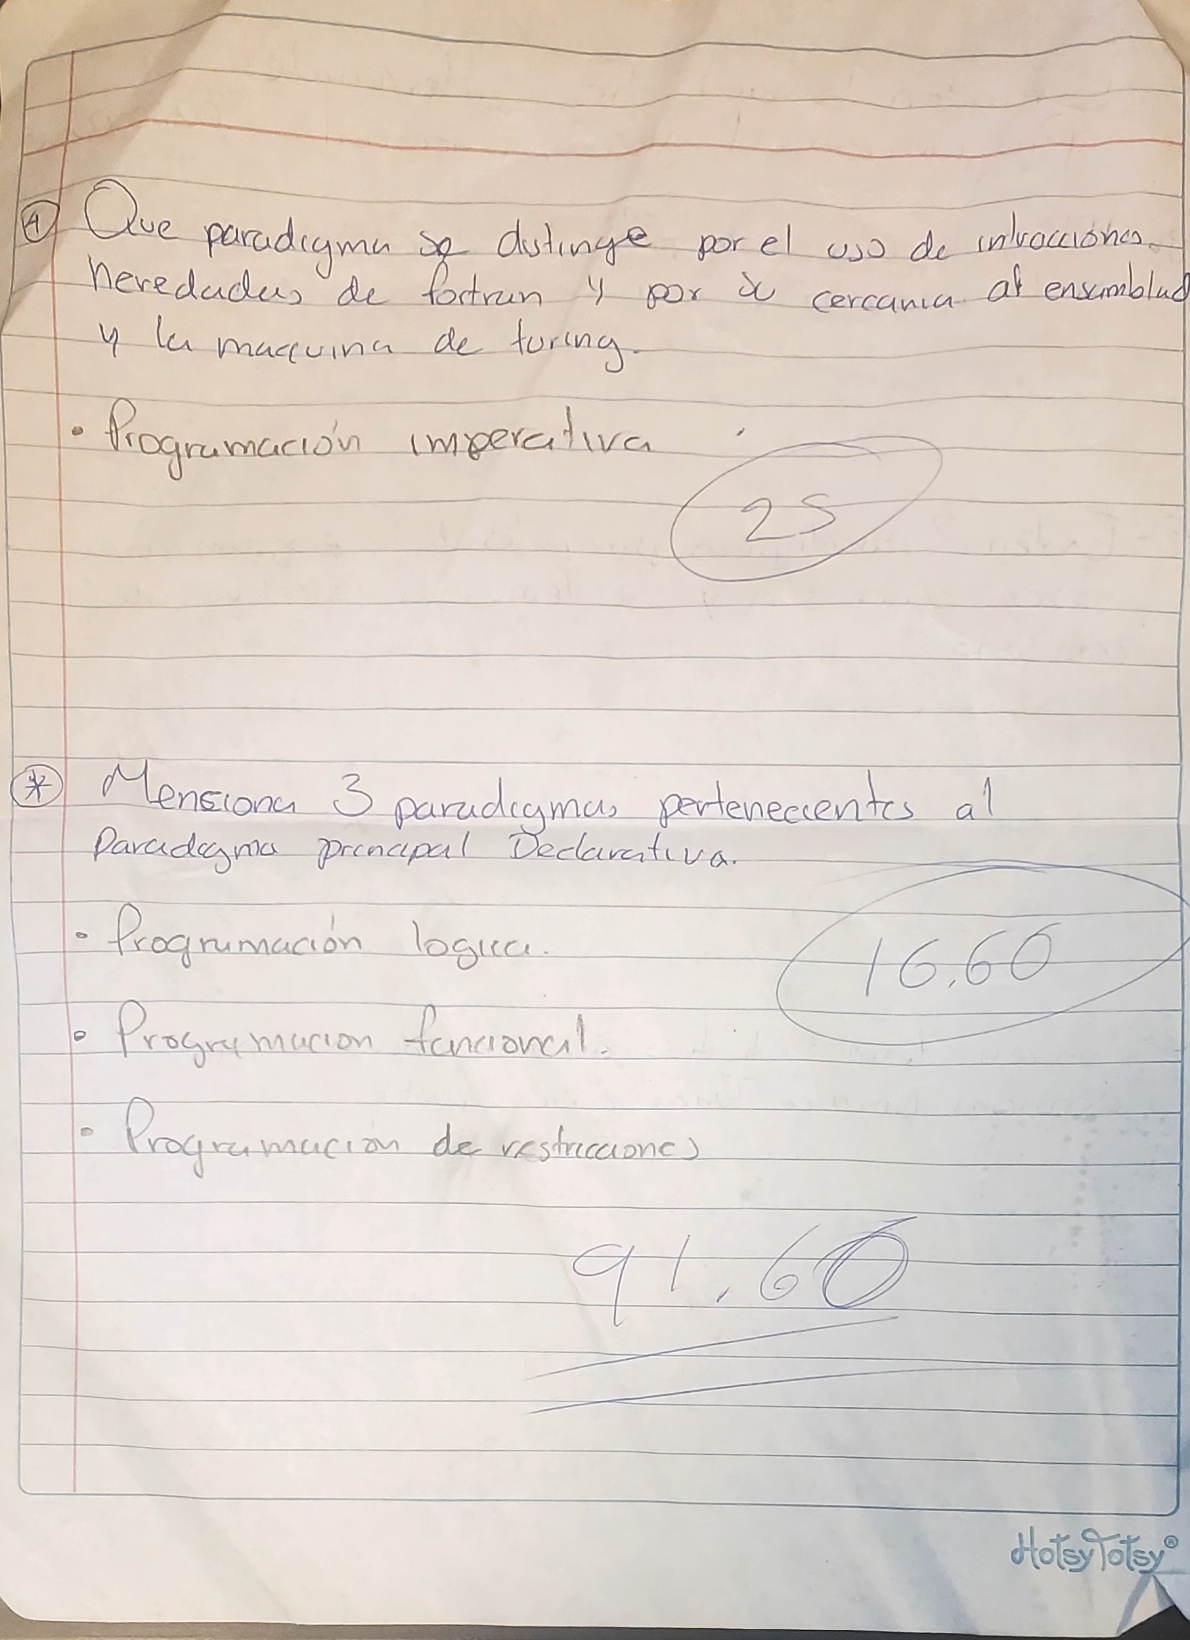 Que paradigma se distinge por el uso de intrucciónes
heredadas de fortran y por su cercania al ensamblad
y la maquina de turing.
• Programación imperativa
25
* Mensiona 3 paradigmas pertenecientes al
Paradigma principal Declarativa.
• Programación logica.
16.60
• Programacion funcional.
• Programacion de restricciones
91.60
HotsyTotsy®